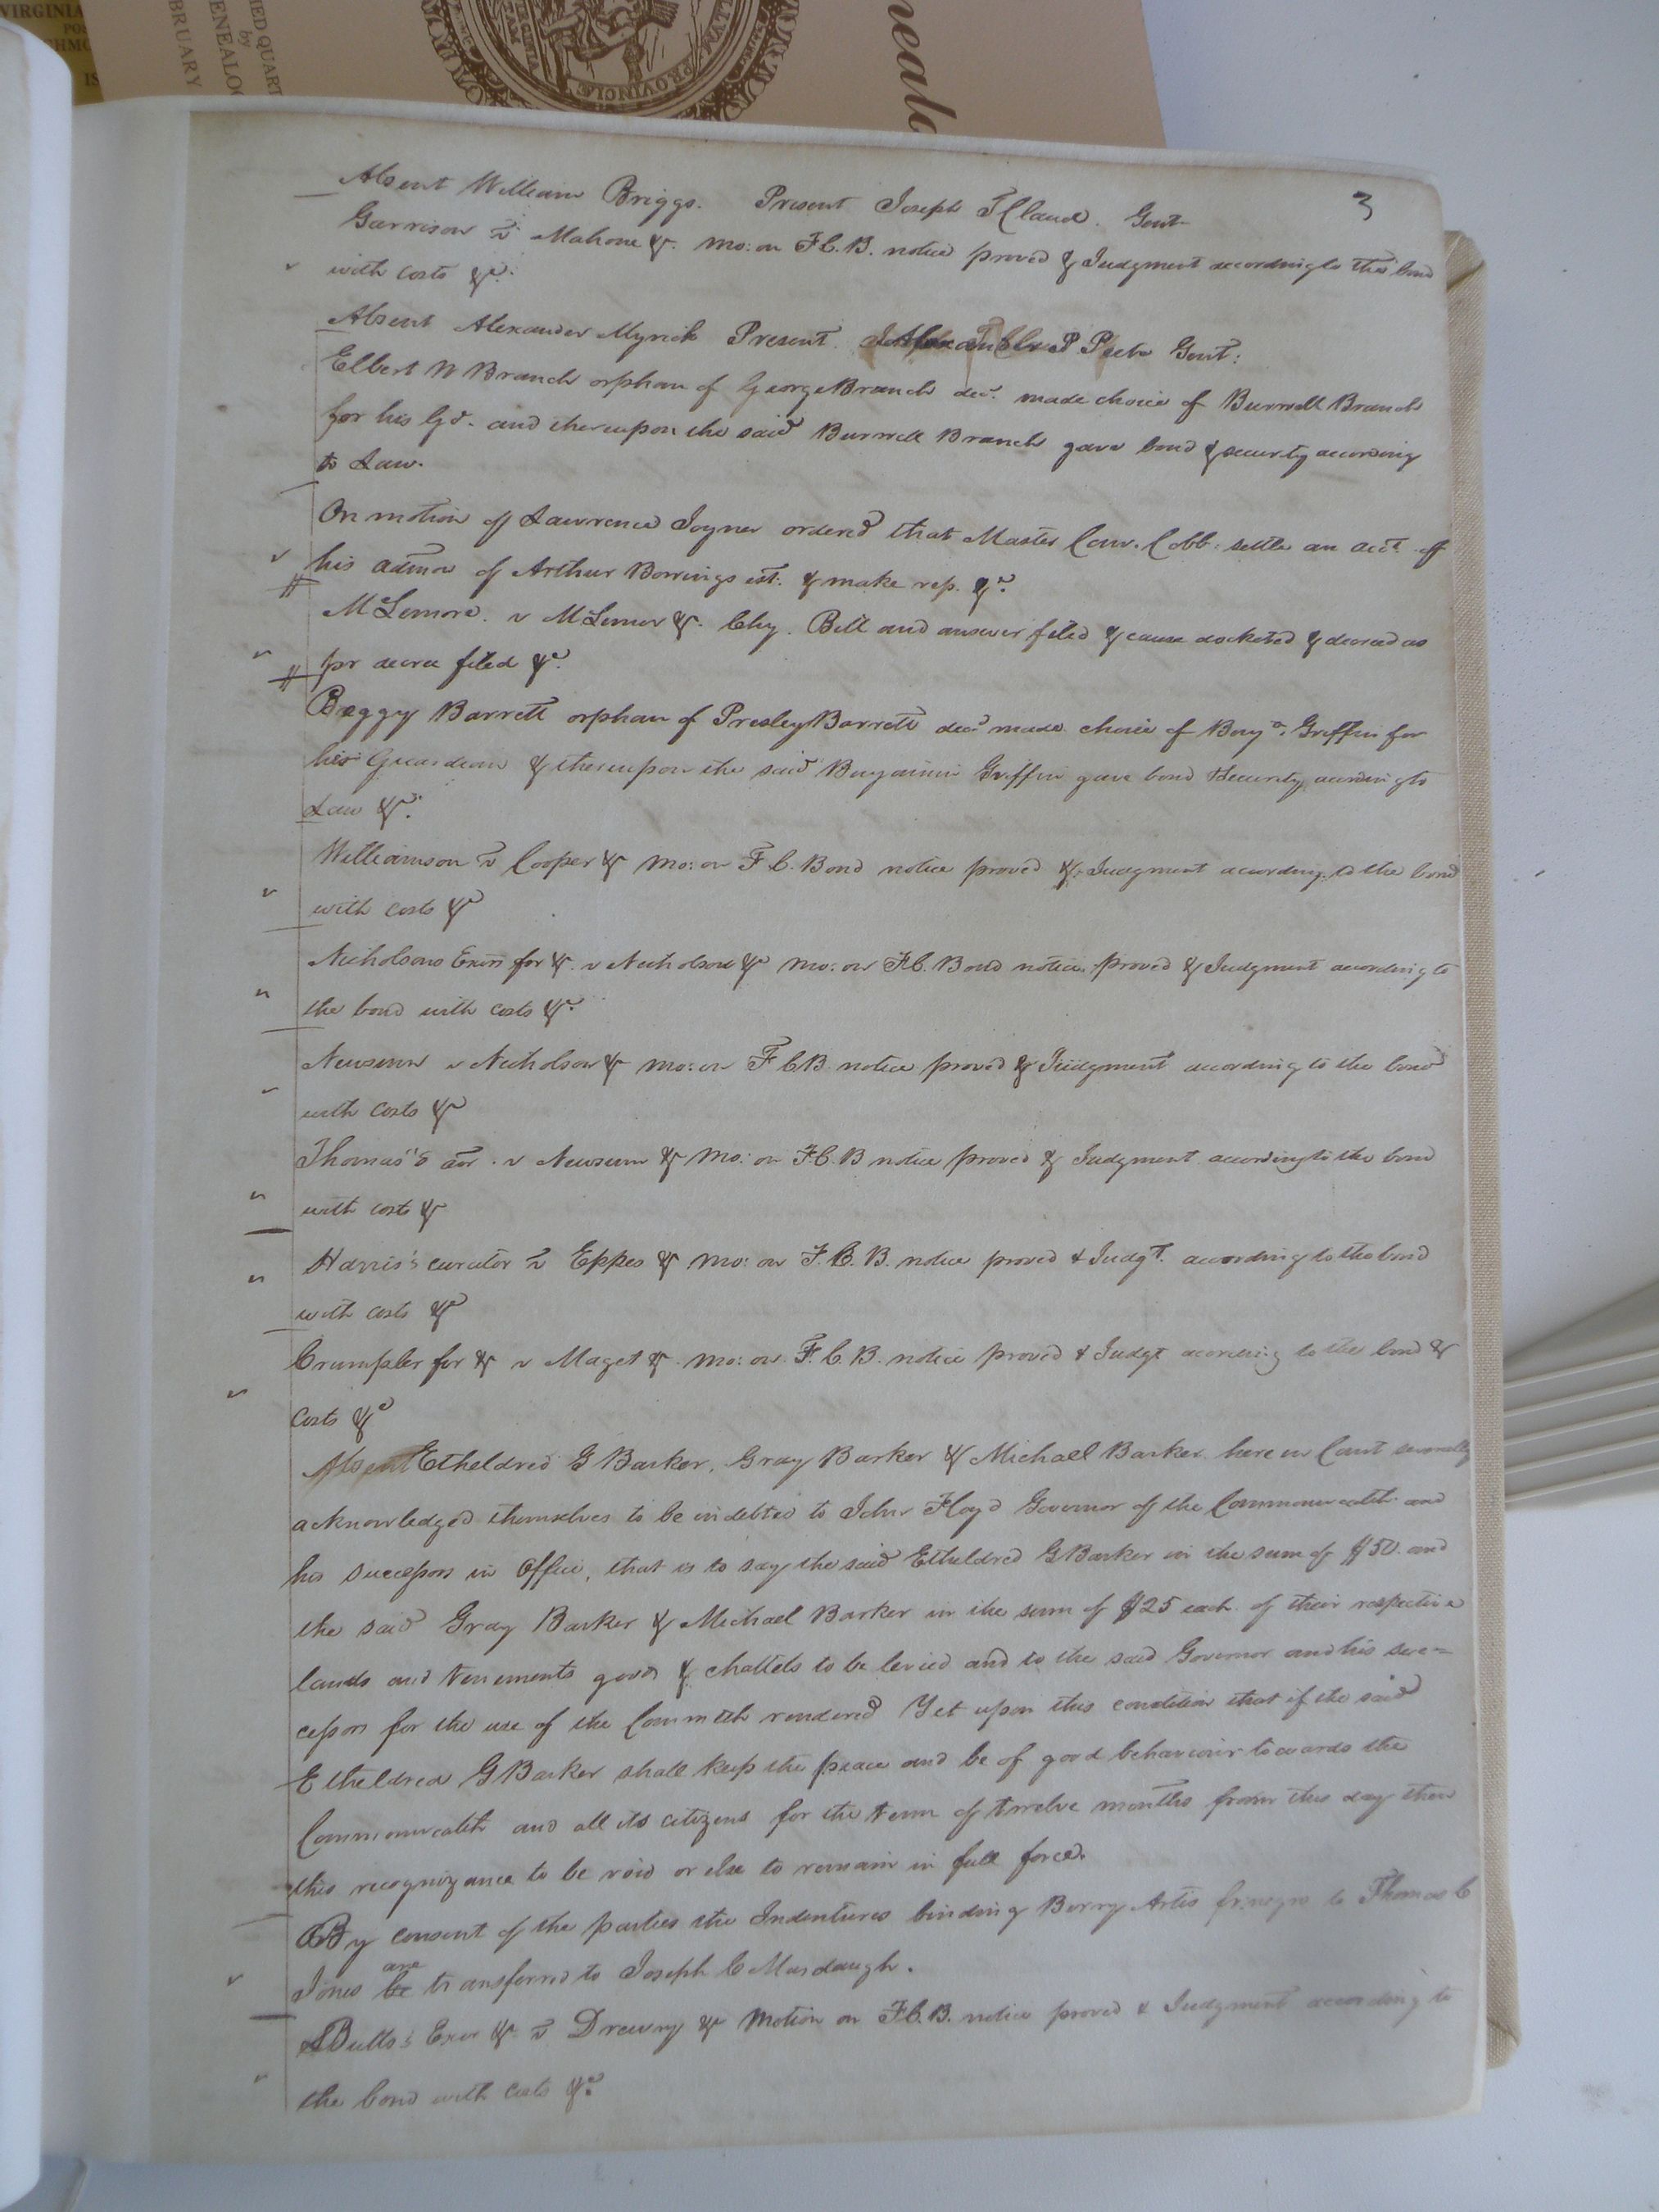 VIRGINIA
BRUARY
IED QUART
by
ENEALOG
PROVINCIÆ
neald
3
Absent William Briggs. Present Joseph T Claud. Gent
Garrison v Mahone &. mo: on F.C.B. notice proved & Judgment according to the bond
with costs &c.
Absent Alexander Myrick Present P Peete Gent:
Elbert W Branch orphan of George Branch decd. made choice of Burwell Branch
for his Gd. and thereupon the said Burwell Branch gave bond & security according
to Law.
On motion of Lawrence Joyner ordered that Master Comr. Cobb settle an acct. of
his admon of Arthur Bowings est. & make rep. &c.
McLemore. v McLemore &. Chy. Bill and answer filed & cause docketed & decreed as
pr decree filed &c.
Peggy Barrett orphan of Presley Barrett decd made choice of Benja. Griffin for
his Guardian & thereupon the said Benjamin Griffin gave bond & security according to
Law &c.
Williamson v Cooper & mo: on F.C. Bond notice proved & Judgment according to the bond
with costs &c
Nicholsons Exors for &. v Nicholson &c mo: on F.C. Bond notice proved & Judgment according to
the bond with costs &c.
Newsum v Nicholson & mo: on F C B notice proved & Judgment according to the bond
with costs &c
Thomas's aor. v Newsum & mo: on F.C.B notice proved & Judgment according to the bond
with costs &
Harris's curator v Eppes & mo: on F.C.B. notice proved & Judgt. according to the bond
with costs &c
Crumpler for & v Maget &. mo: on F.C.B. notice proved & Judgt according to the bond &
costs &c
Absent Etheldred G Barker, Gray Barker & Michael Barker here in Court severally
acknowledged themselves to be indebted to John Floyd Governor of the Commonwealth and
his successors in Office, that is to say the said Etheldred G Barker in the sum of $50. and
the said Gray Barker & Michael Barker in the sum of $25 each of their respective
lands and tenements goods & chattels to be levied and to the said Governor and his suc=
cessors for the use of the Commth rendered Yet upon this condition that if the said
Etheldred G Barker shall keep the peace and be of good behaviour towards the
Commonwealth and all its citizens for the term of twelve months from this day then
this recognizance to be void or else to remain in full force.
By consent of the parties the Indentures binding Berry Artis fr: negro to Thomas C
Jones be are transferred to Joseph C Murdaugh.
Butts's Exor & v Drewry & Motion on F.C.B. notice proved & Judgment according to
the bond with costs &c.